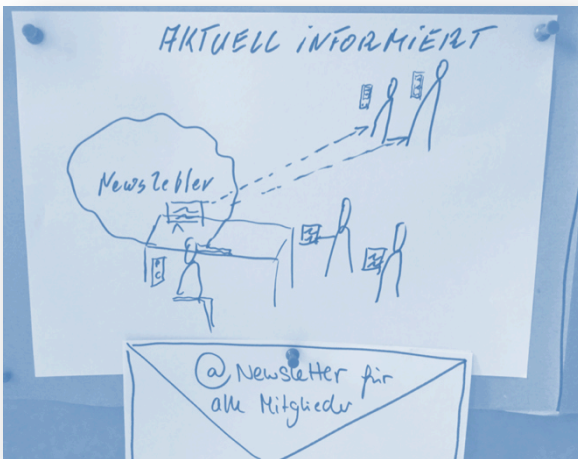 AKTUELL INFORMIERT
Newsletter
@ Newsletter für
alle Mitglieder